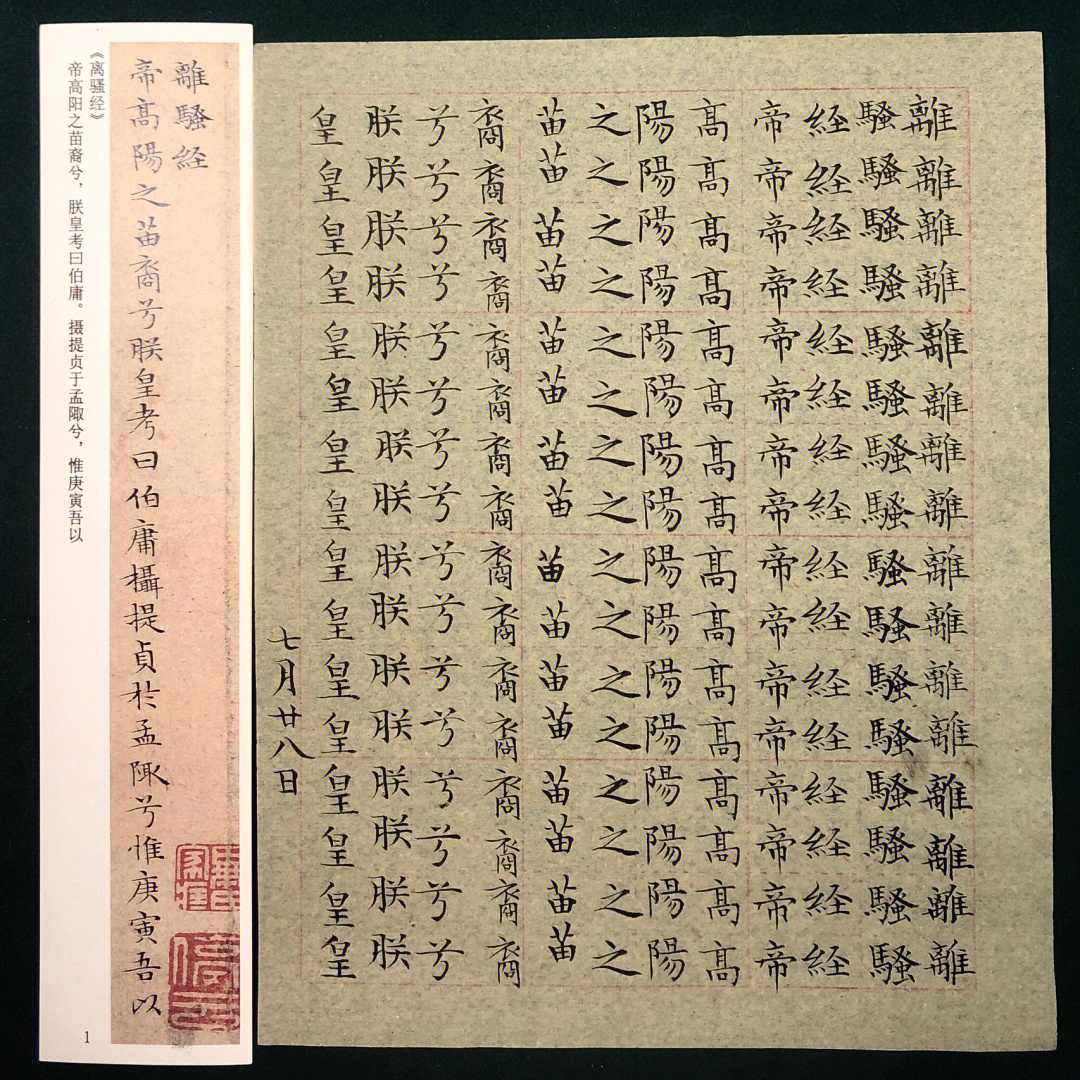 離離離離離離離離離離離離離離離離
騷騷騷騷騷騷騷騷騷騷騷騷騷騷騷騷
経経経経経経経経経経経経経経経経
帝帝帝帝帝帝帝帝帝帝帝帝帝帝帝帝
髙髙髙髙髙髙髙髙髙髙髙髙髙髙髙髙
陽陽陽陽陽陽陽陽陽陽陽陽陽陽陽陽
之之之之之之之之之之之之之之之之
苗苗苗苗苗苗苗苗苗苗苗苗苗苗苗苗
裔裔裔裔裔裔裔裔裔裔裔裔裔裔裔裔
兮兮兮兮兮兮兮兮兮兮兮兮兮兮兮兮
朕朕朕朕朕朕朕朕朕朕朕朕朕朕朕朕
皇皇皇皇皇皇皇皇皇皇皇皇皇皇皇皇
七月廿八日
離騷経
帝髙陽之苗裔兮朕皇考曰伯庸攝提貞於孟陬兮惟庚寅吾以
《离骚经》
帝高阳之苗裔兮，朕皇考曰伯庸。摄提贞于孟陬兮，惟庚寅吾以
1